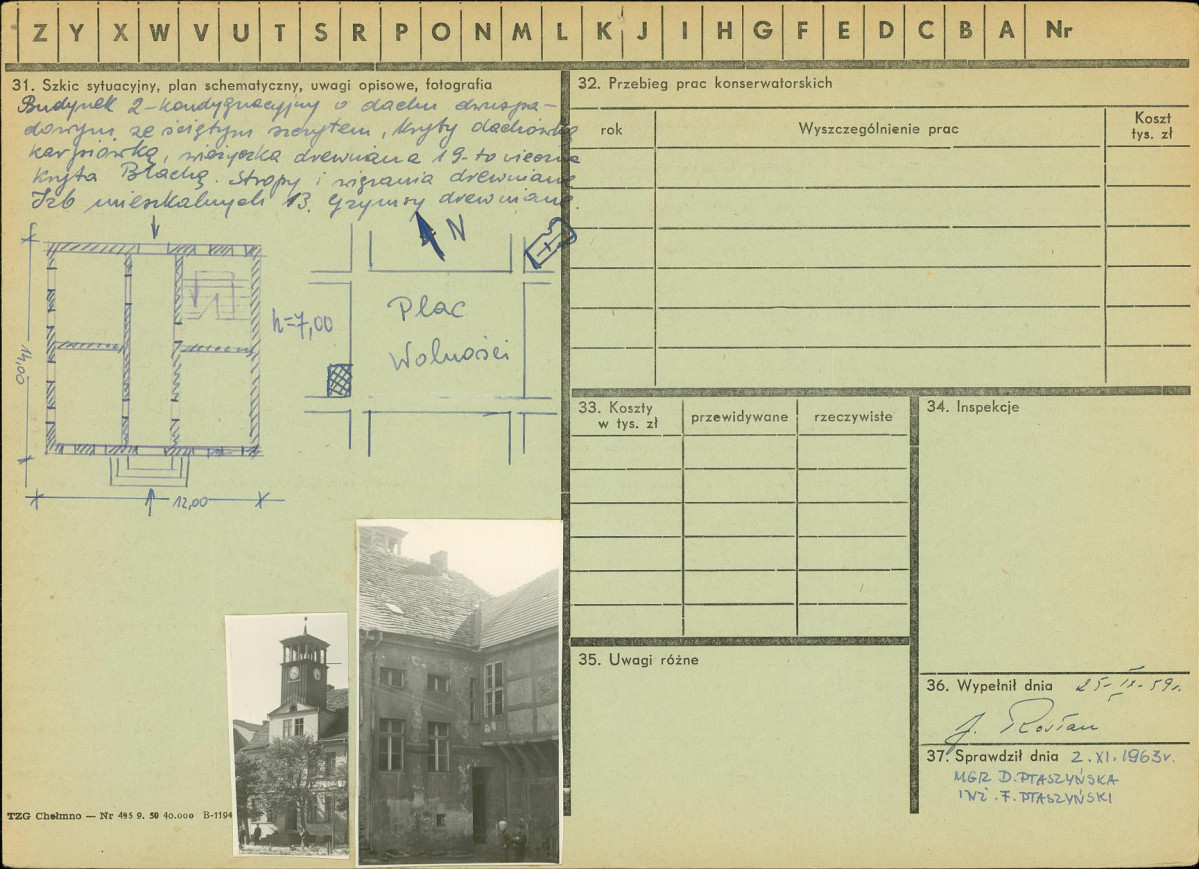 Z Y X W V U T S R P O N M L K J I H G F E D C B A Nr
31. Szkic sytuacyjny, plan schematyczny, uwagi opisowe, fotografia
Budynek 2-kondygnacyjny o dachu dwuspa-
dowym ze ściętym szczytem, kryty dachówką
karpiówką, wieżyczka drewniana 19-to wieczna
kryta Blachą. Stropy i wiązania drewniane
Izb mieszkalnych 13. Gzymsy drewniane.
N
14,00
h=7,00
Plac
Wolności
12,00
TZG Chełmno — Nr 495 9. 50 40.000 B-1194
32. Przebieg prac konserwatorskich
rok
Wyszczególnienie prac
Koszt
tys. zł
33. Koszty
w tys. zł
przewidywane
rzeczywiste
34. Inspekcje
35. Uwagi różne
36. Wypełnił dnia 25-IX-59r.
J.
37. Sprawdził dnia 2.XI.1963r.
MGR D. PTASZYŃSKA
INŻ. F. PTASZYŃSKI